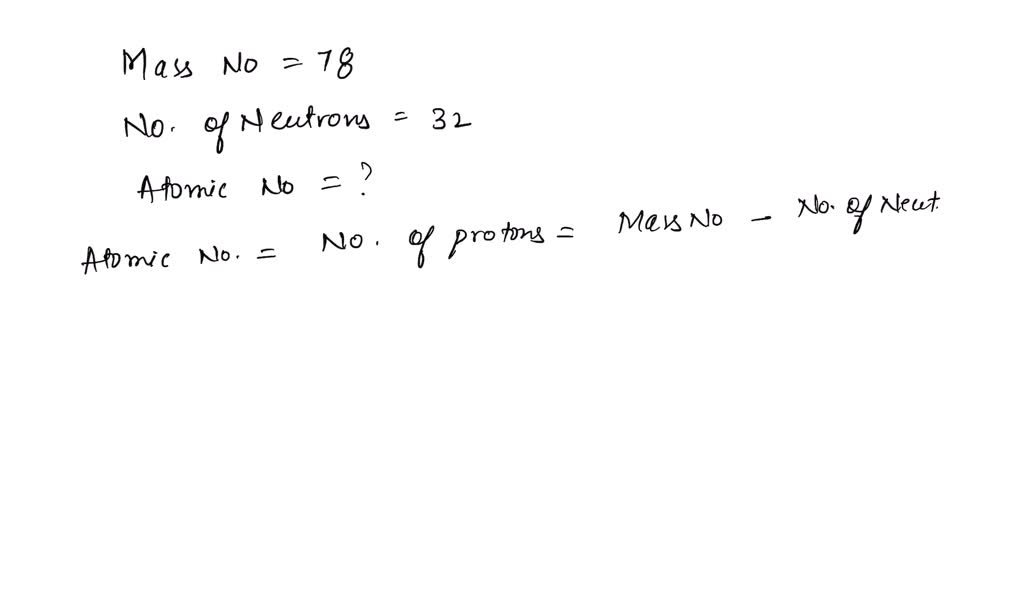 Mass No = 78
No. of Neutrons = 32
Atomic No = ?
Atomic No. = No. of protons = Mass No - No. of Neut.